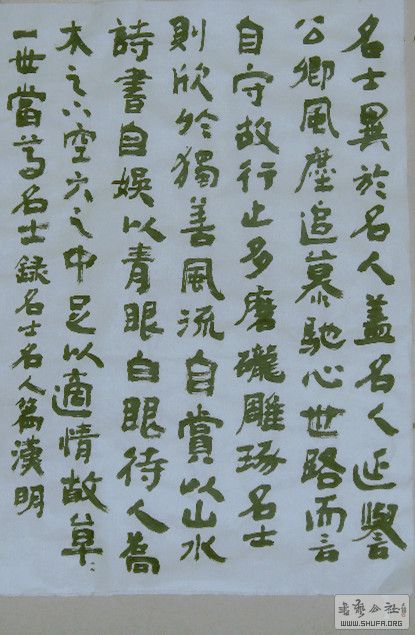 名士異於名人蓋名人延譽
公卿風塵追慕馳心世路而言
自守故行止多磨礲雕琢名士
則欣於獨善風流自賞以山水
詩書自娛以青眼白眼待人喬
木之下空穴之中足以適情故草〻
一世當為名士錄名士名人篇漢明
書藝公社
WWW.SHUFA.ORG